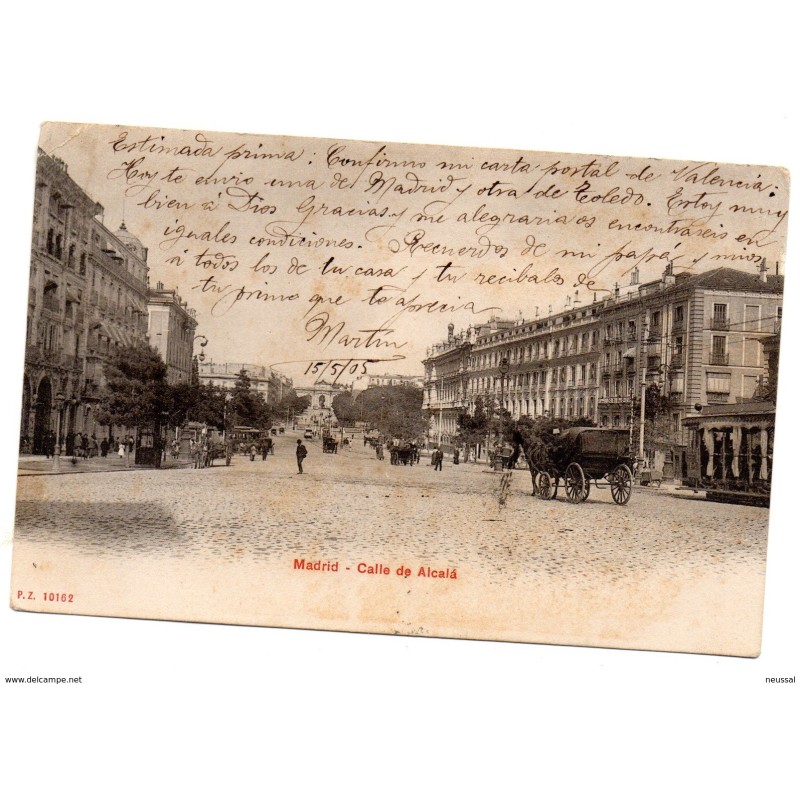 Estimada prima: Confirmo mi carta postal de Valencia.
Hoy te envio una de Madrid y otra de Toledo. Estoy muy
bien á Dios Gracias y me alegraria os encontraseis en
iguales condiciones. Recuerdos de mi papá y mios
á todos los de tu casa y tu recibalos de
tu primo que te aprecia
Martin
15/5/05
Madrid - Calle de Alcalá
P.Z. 10162
www.delcampe.net
neussal